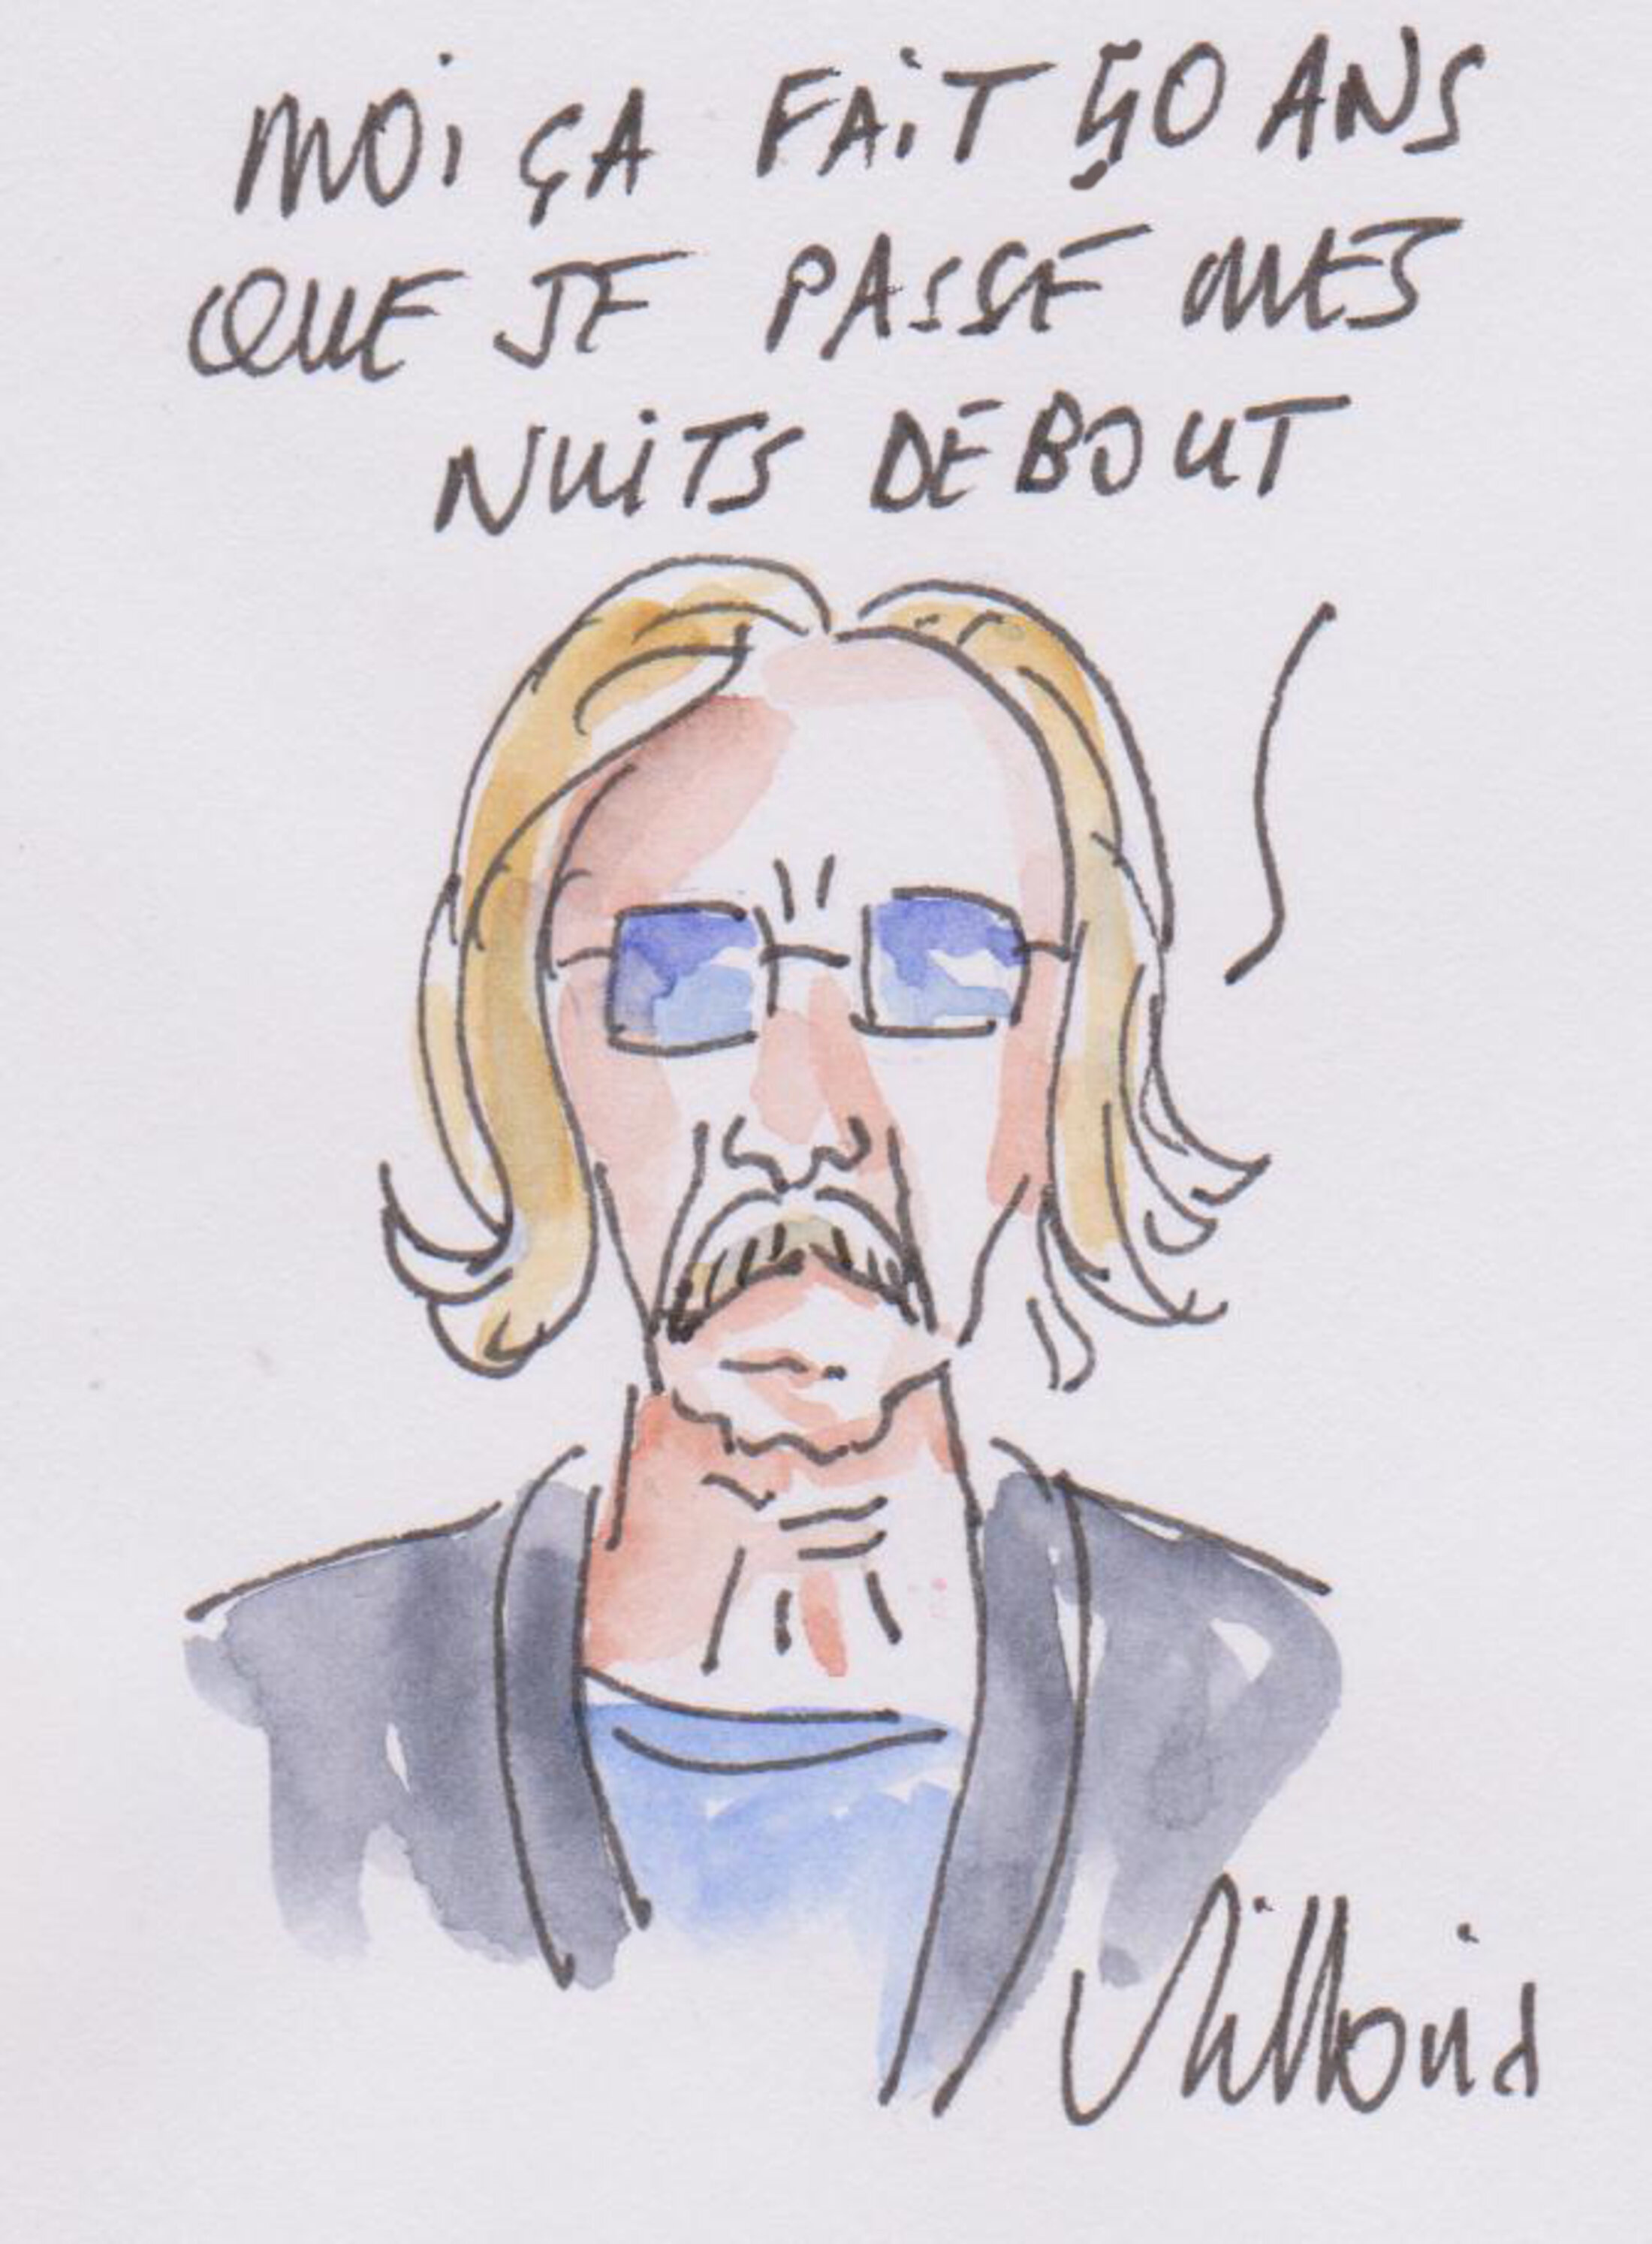 MOi ÇA FAiT 50 ANS
QUE JE PASSE MES
NUiTS DEBOUT
Villoin